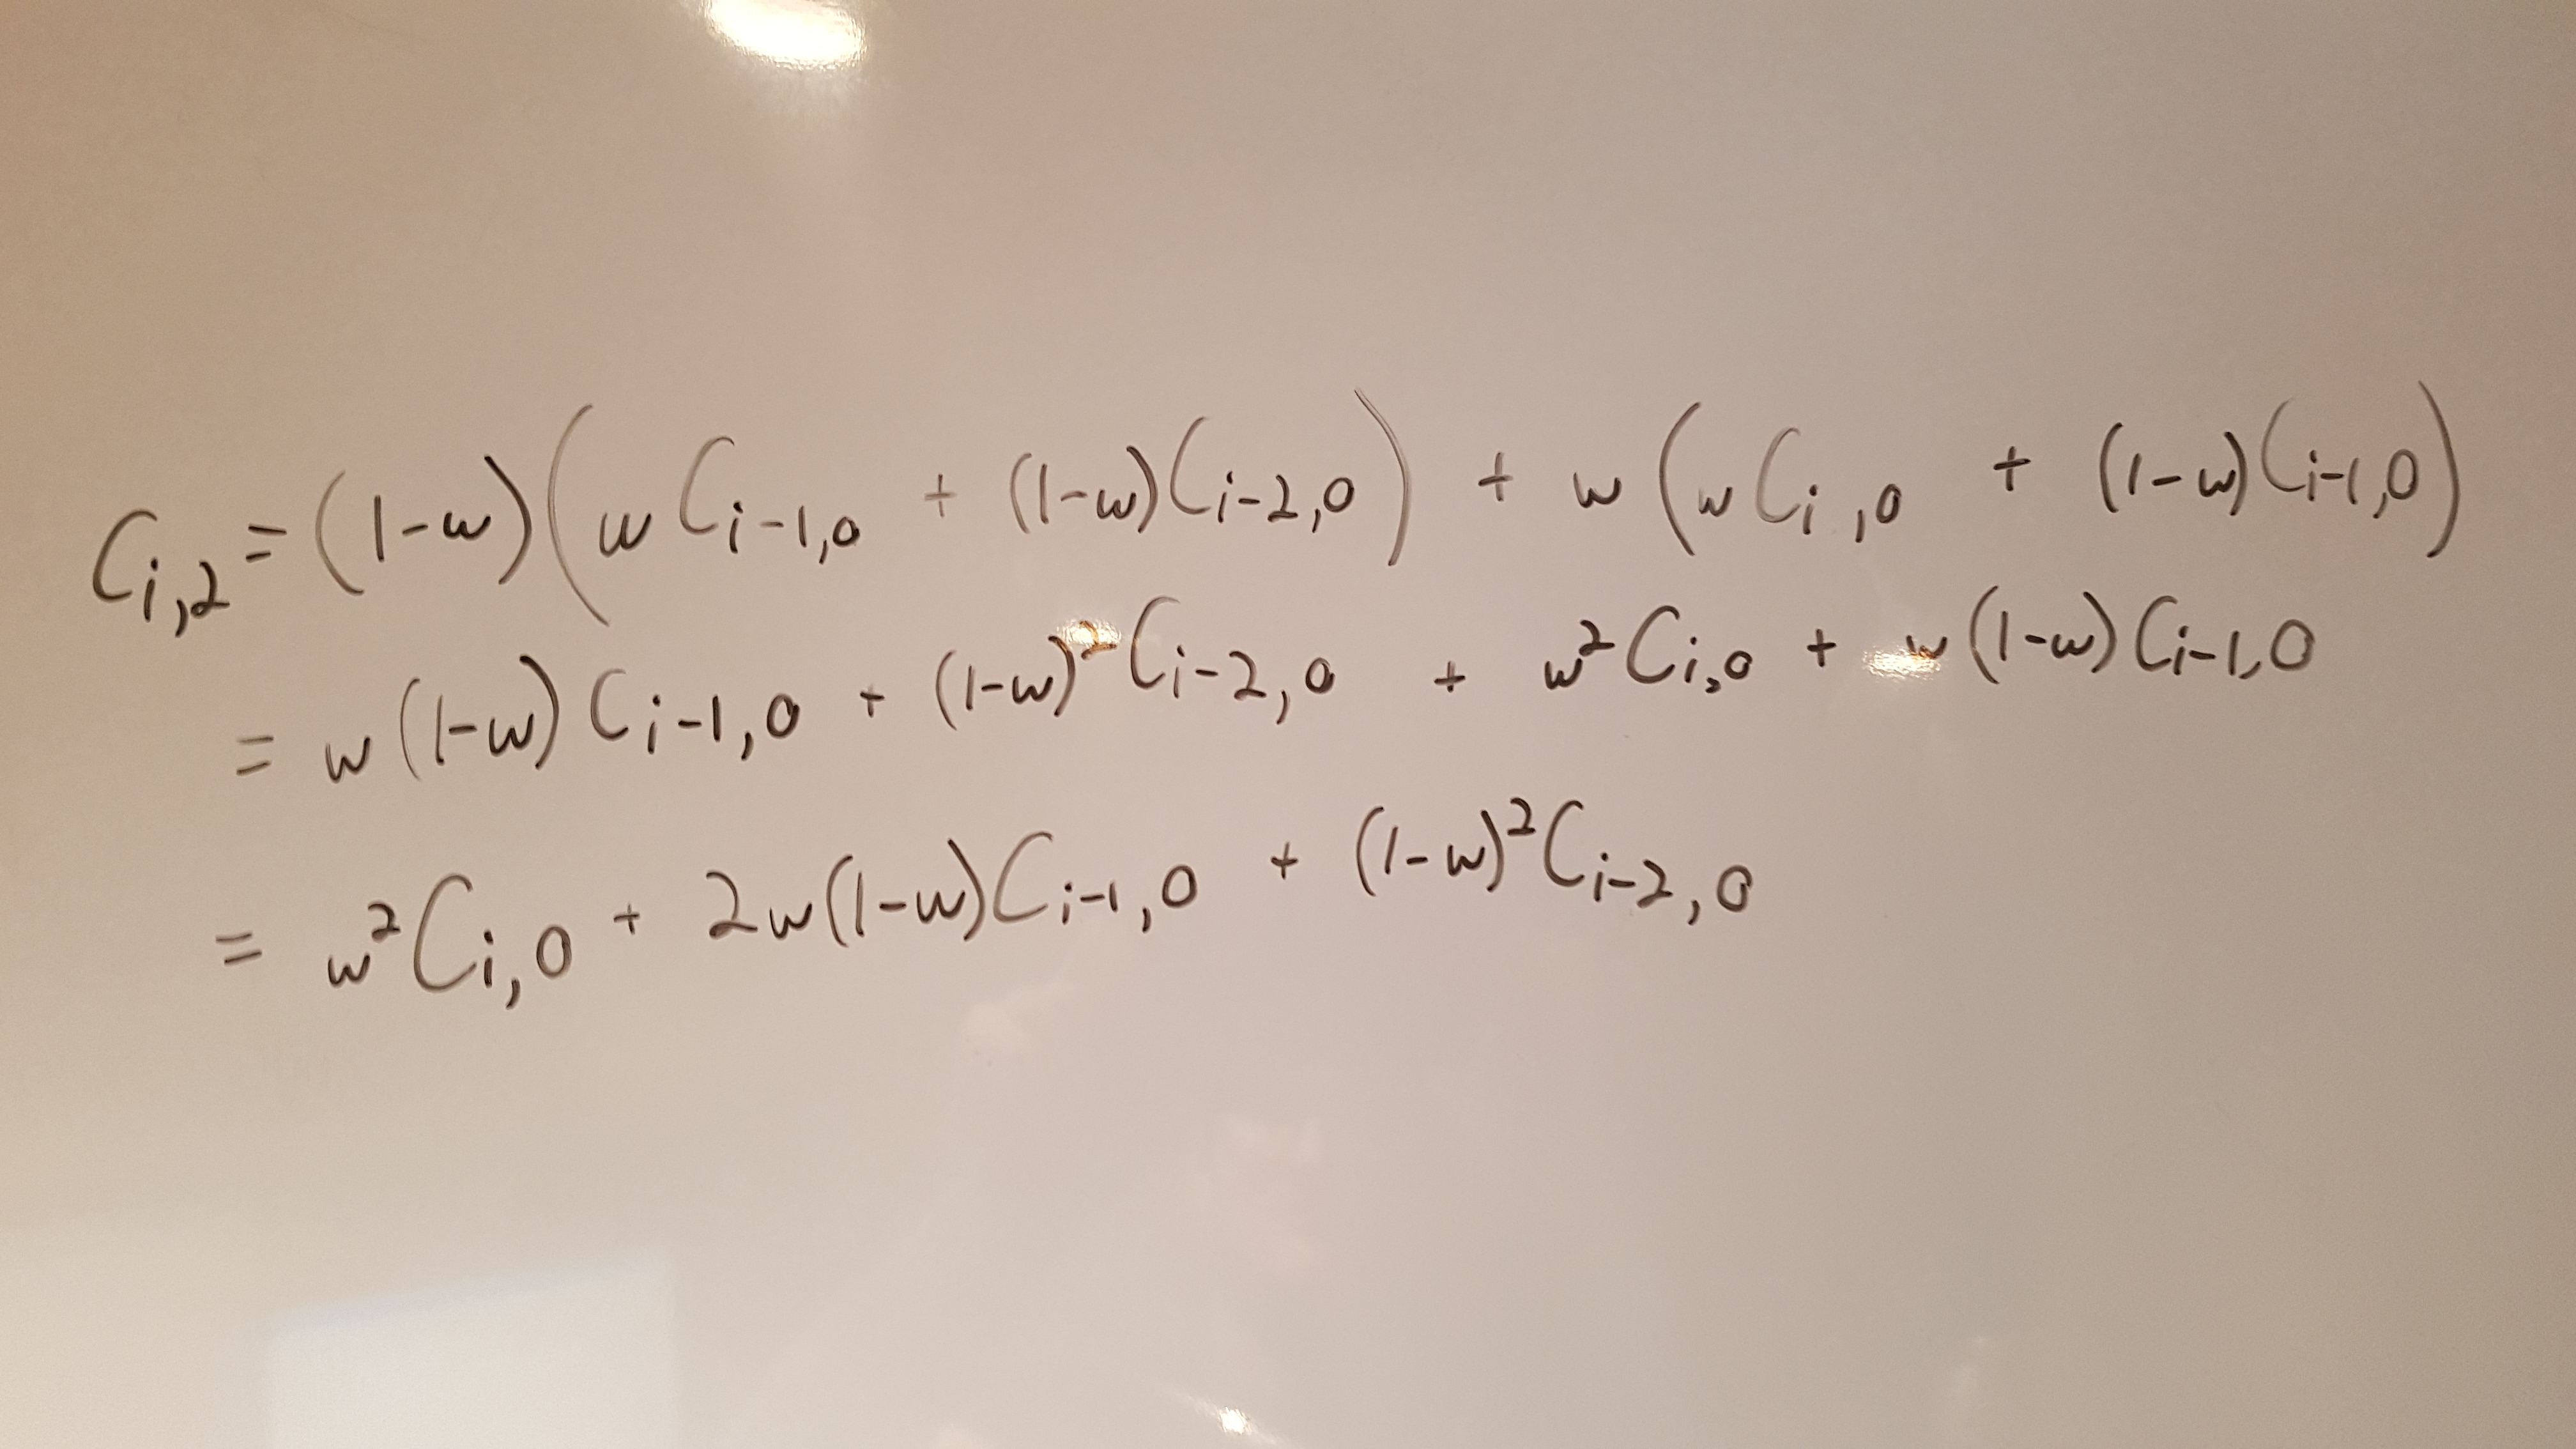 C_{i,2} = (1-w)(w C_{i-1,0} + (1-w)C_{i-2,0}) + w(w C_{i,0} + (1-w)C_{i-1,0})
= w(1-w) C_{i-1,0} + (1-w)^2 C_{i-2,0} + w^2 C_{i,0} + w(1-w) C_{i-1,0}
= w^2 C_{i,0} + 2w(1-w)C_{i-1,0} + (1-w)^2 C_{i-2,0}